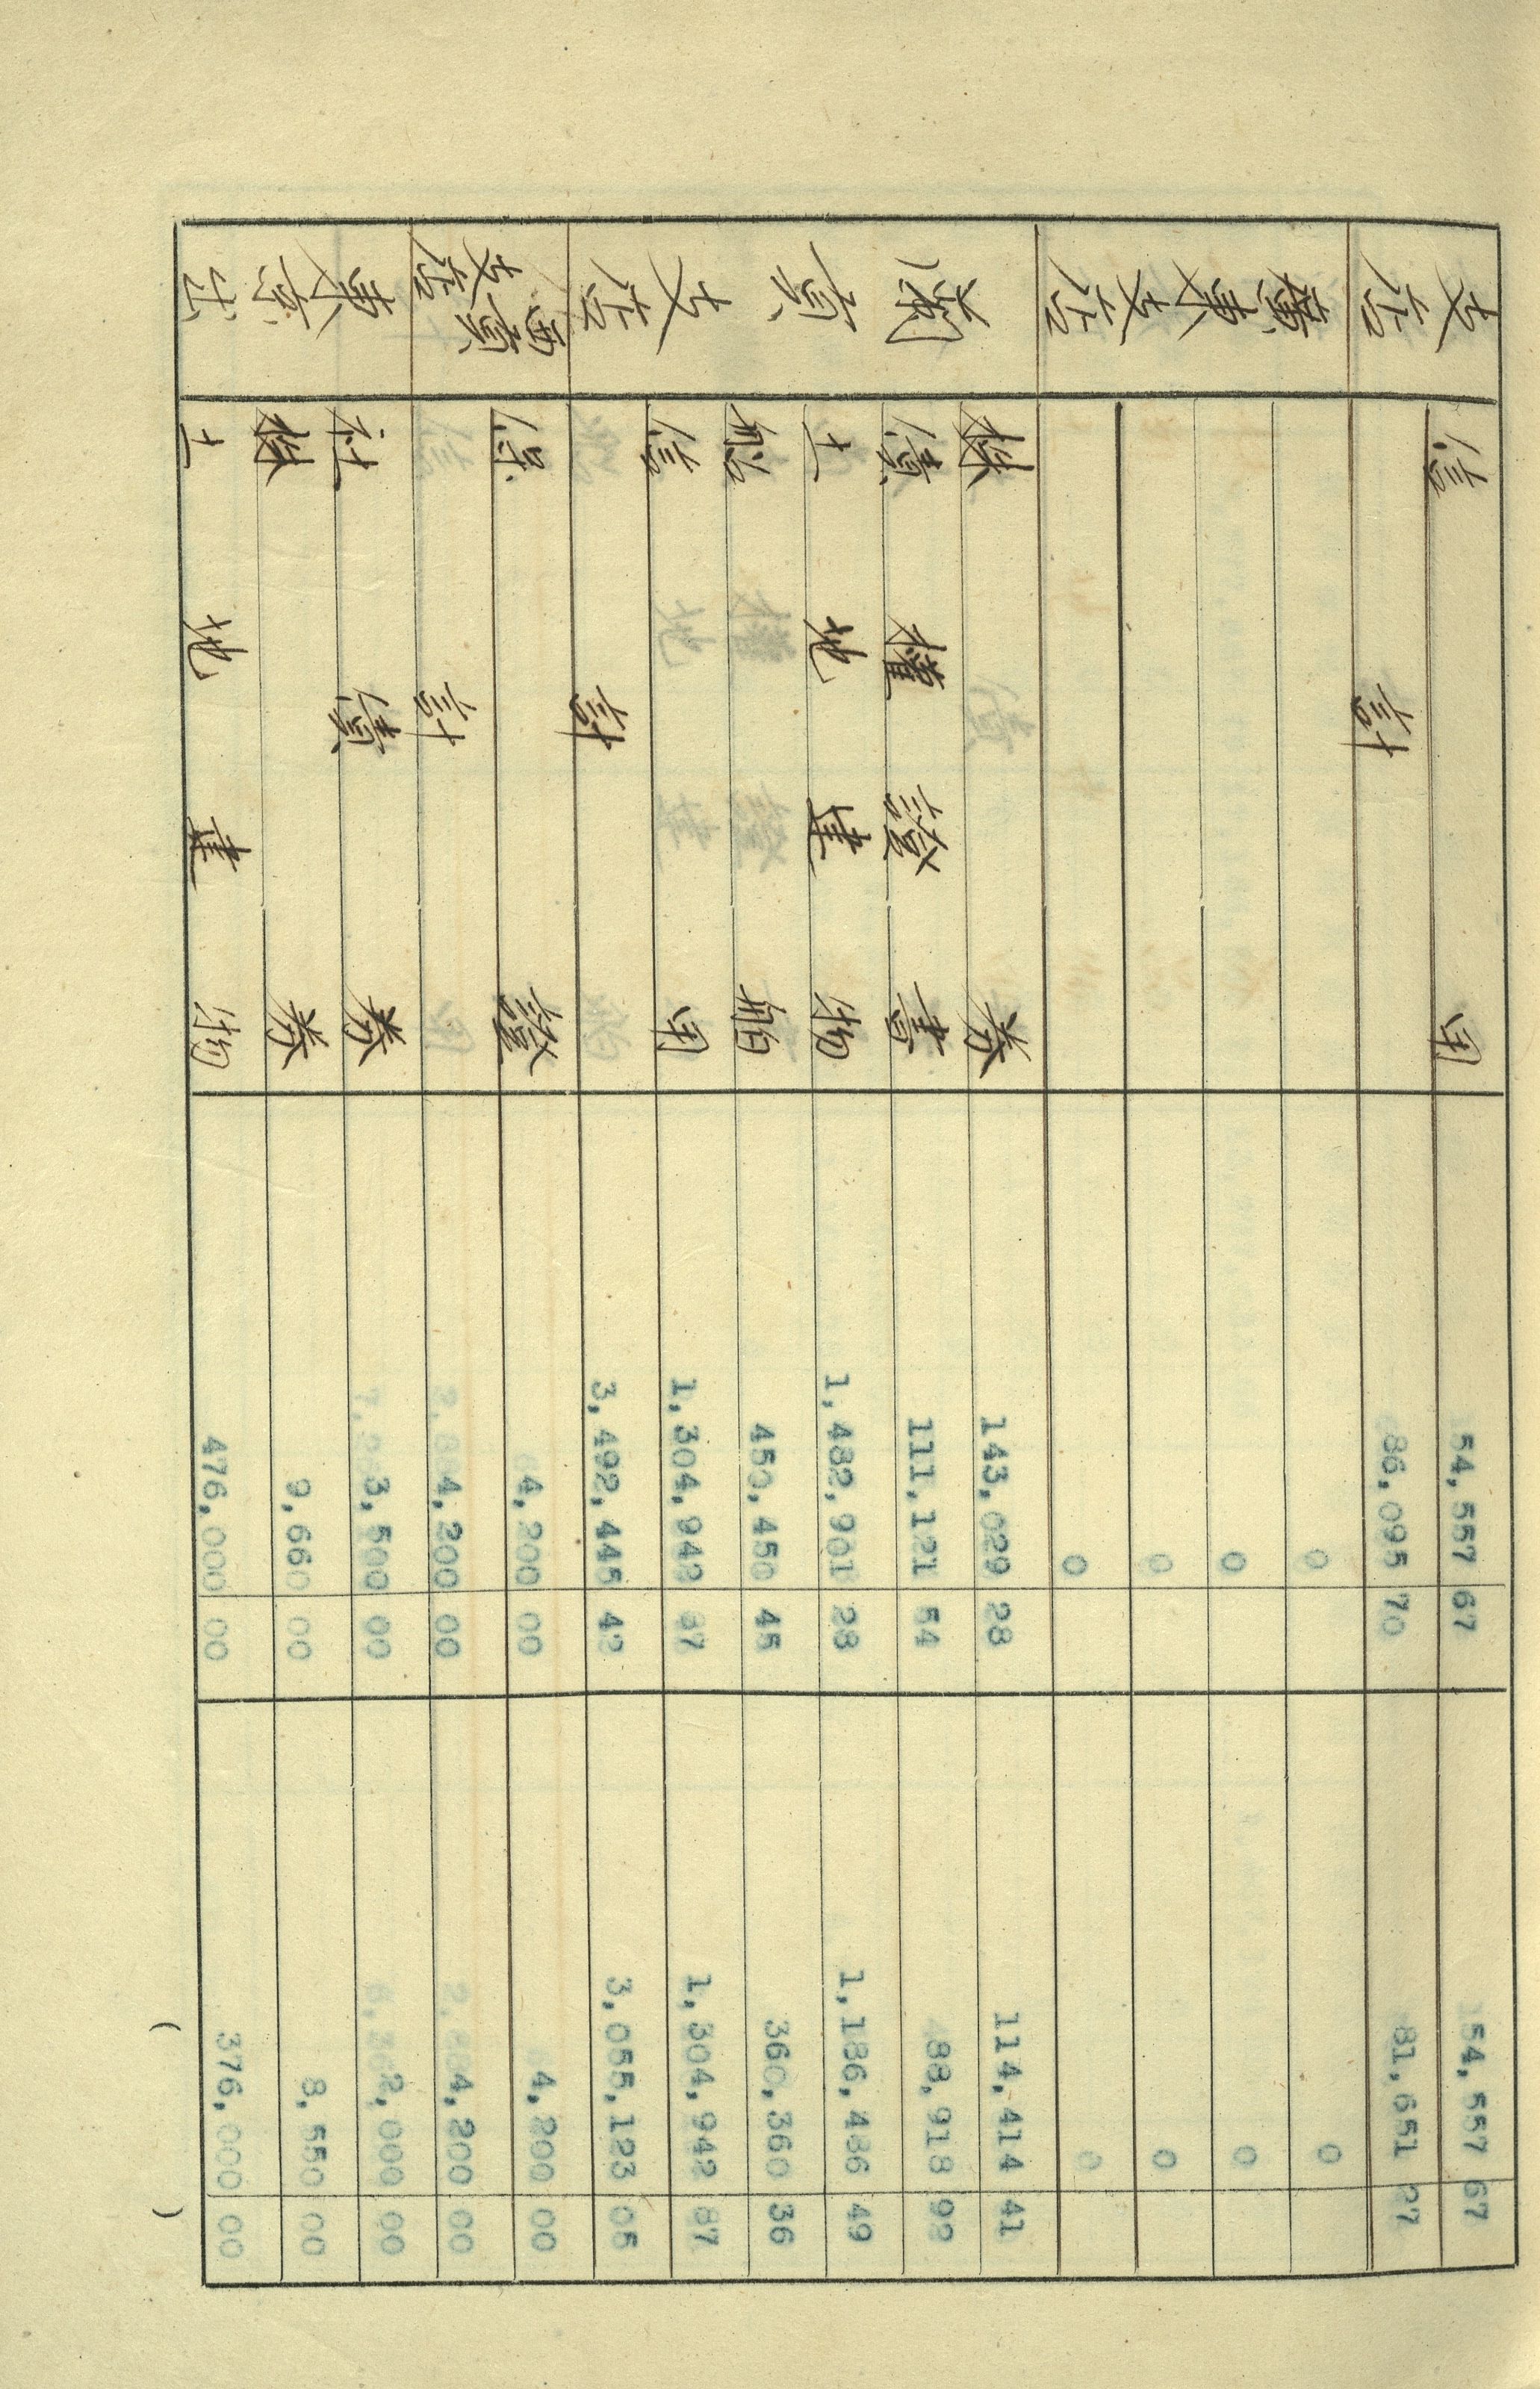 支店 信用 54,557 67 54,557 67
計 86,095 70 81,651 27
廣東支店 0 0
0 0
0 0
0 0
蘭貢支店 株券 143,029 28 114,414 41
債權證書 111,121 54 88,918 92
土地建物 1,482,901 28 1,186,486 49
船舶 450,450 45 360,360 36
信用 1,304,942 87 1,304,942 87
計 3,492,445 42 3,055,123 05
西貢支店 保證 4,200 00 4,200 00
計 4,200 00 4,200 00
東京出 社債券 3,500 00 2,000 00
株券 9,660 00 8,550 00
土地建物 476,000 00 376,000 00
( )